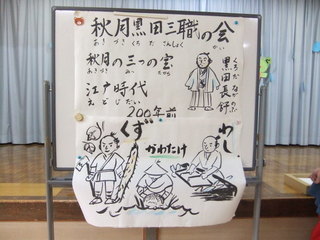 秋月黒田三職の会
あきづきくろださんしょく かい
秋月の三つの宝
あきづき みっ たから
江戸時代
えどじだい
200年前
黒田長舒
くろだながのぶ
くず
かわたけ
わし